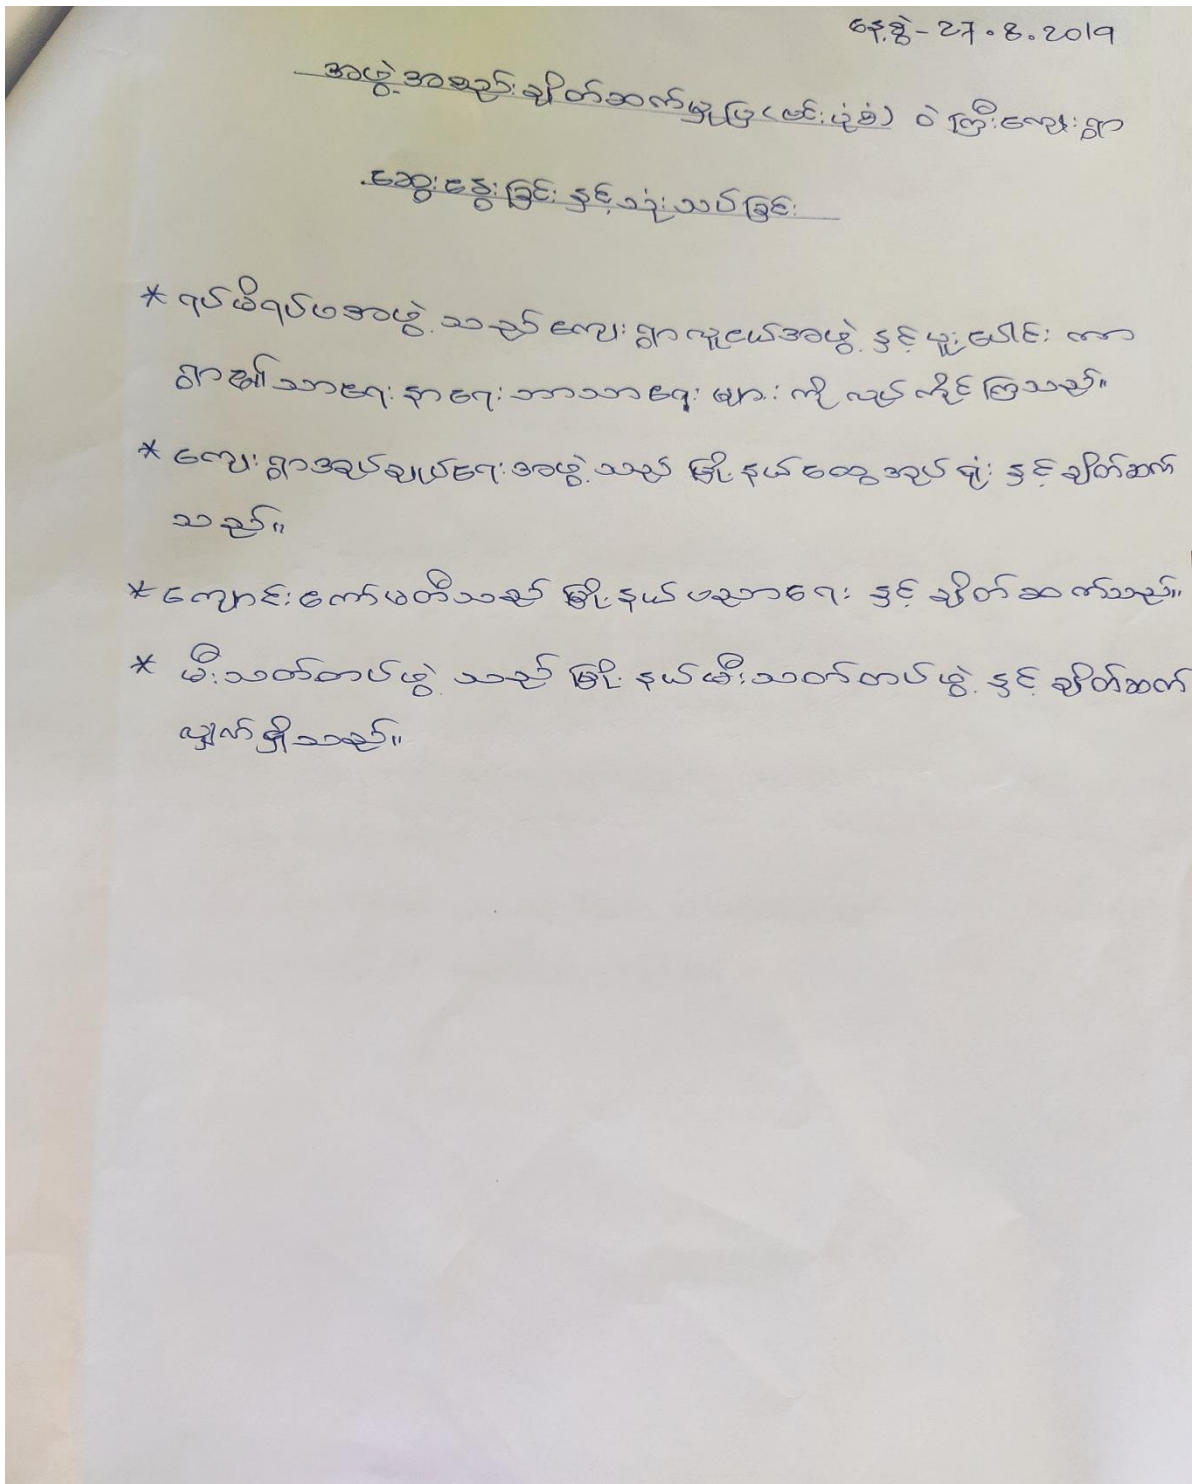 နေ့စွဲ - 27.8.2019
အဖွဲ့အစည်းချိတ်ဆက်မှုပြ(ဗင်းပုံစံ) ဝဲကြီးကျေးရွာ
ဆွေးနွေးခြင်း နှင့်သုံးသပ်ခြင်း
* ရပ်မိရပ်ဖအဖွဲ့ သည် ကျေးရွာလူငယ်အဖွဲ့ နှင့် ပူးပေါင်းကာ
ရွာ၏သာရေး နာရေး ဘာသာရေး များ ကို လုပ်ကိုင်ကြသည်။
* ကျေးရွာအုပ်ချုပ်ရေးအဖွဲ့ သည် မြို့နယ်ထွေအုပ်ရုံး နှင့် ချိတ်ဆက်
သည်။
* ကျောင်းကော်မတီသည် မြို့နယ်ပညာရေး နှင့် ချိတ်ဆက်သည်။
* မီးသတ်တပ်ဖွဲ့ သည် မြို့နယ်မီးသတ်တပ်ဖွဲ့ နှင့် ချိတ်ဆက်
လျှက်ရှိသည်။